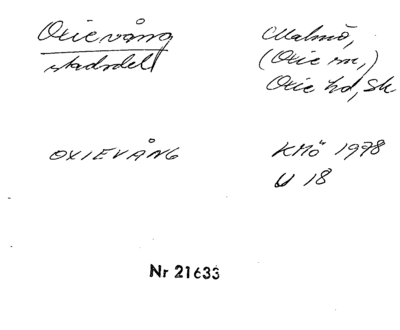 Oxievång
stadsdel
Malmö,
(Oxie sn,)
Oxie hd, Sk
OXIEVÅNG
KMÖ 1978
U 18
Nr 21633